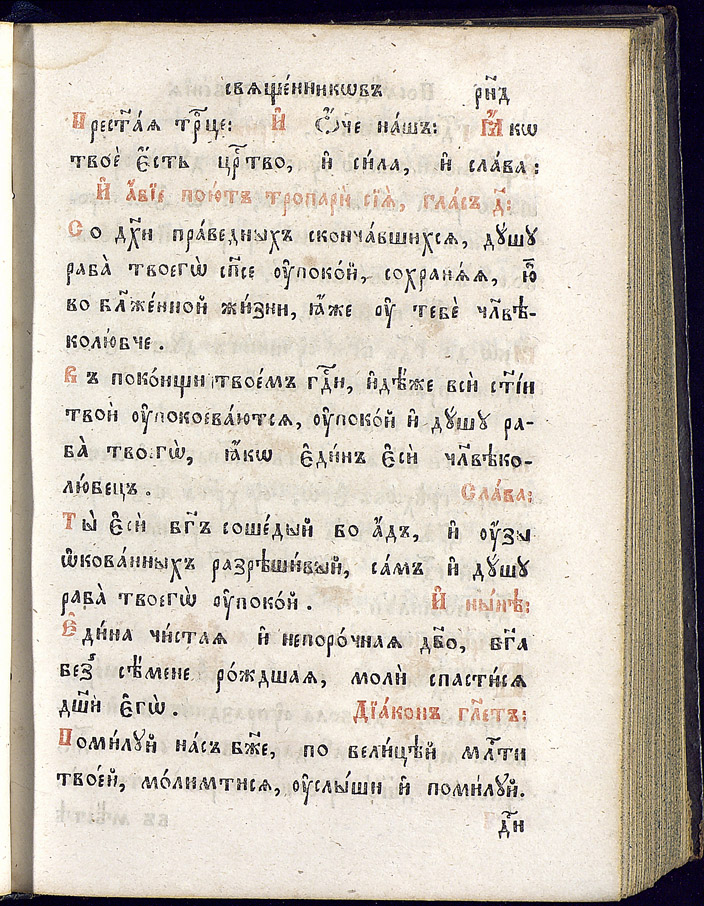 свѧще́нникѡвъ рн҃д
Прест҃а́ѧ тр҃це: И҆ Ѿче на́шъ: Ꙗ҆́кѡ
твоѐ є҆́сть црⷭ҇тво, и҆ си́ла, и҆ сла́ва:
И҆ а҆́бїе пою́тъ тропарѝ сїѧ̑, гла́съ д҃:
Со дꙋ́хи пра́ведныхъ сконча́вшихсѧ, дꙋ́шꙋ
раба̀ твоегѡ̀ сп҃се ᲂу҆поко́й, сохранѧ́ѧ, ю҆̀
во бл҃же́нной жи́зни, ꙗ҆́же ᲂу҆ тебѐ чл҃вѣ-
колю́бче.
Въ поко́ищи твое́мъ гдⷭ҇и, и҆дѣ́же всѝ ст҃і́и
твоѝ ᲂу҆покоева́ютсѧ, ᲂу҆поко́й и҆ дꙋ́шꙋ ра-
ба̀ твоегѡ̀, ꙗ҆́кѡ є҆ди́нъ є҆сѝ чл҃вѣко-
лю́бецъ. Сла́ва:
Ты̀ є҆сѝ бг҃ъ соше́дый во а҆́дъ, и҆ ᲂу҆́зы
ѡ҆кова́нныхъ разрѣши́вый, са́мъ и҆ дꙋ́шꙋ
раба̀ твоегѡ̀ ᲂу҆поко́й. И҆ ны́нѣ:
Є҆ди́на чи́стаѧ и҆ непоро́чнаѧ дв҃о, бг҃а
без̾ сѣ́мене ро́ждшаѧ, молѝ спасти́сѧ
дш҃ѝ є҆гѡ̀. Дїа́конъ гл҃етъ:
Поми́лꙋй на́съ бж҃е, по вели́цѣй млⷭ҇ти
твое́й, мо́лимтисѧ, ᲂу҆слы́ши и҆ поми́лꙋй.
ди́